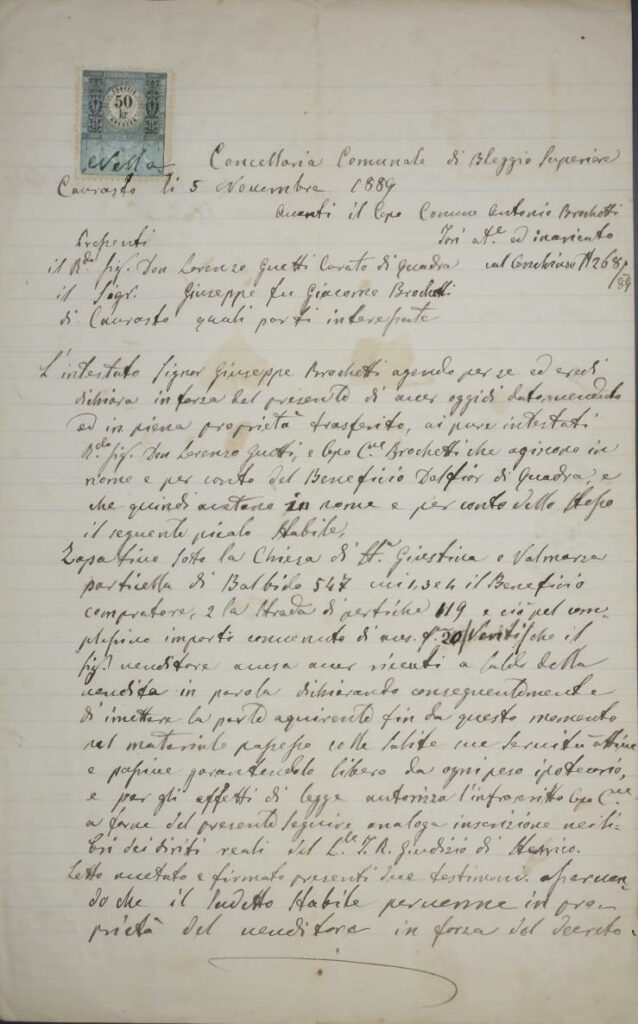 50
kr
Cancellaria Comunale di Bleggio Superiore
Cavrasto li 5 Novembre 1889
Avanti il Capo Comune Antonio Brochetti
Presenti
il Rdo Sig. Don Lorenzo Guetti Curato di Quadra
il Sigr. Giuseppe fu Giacomo Brochetti
di Cavrasto quali parti interessate
L'intestato Signor Giuseppe Brochetti agendo per se ed eredi
dichiara in forza del presente di aver oggidì dato, venduto
ed in piena proprietà trasferito, ai pure intestati
Rdo Sig. Don Lorenzo Guetti, e Capo Cne Brochetti che agiscono in
nome e per conto del Beneficio Dalfior di Quadra, e
che quindi acetano in nome e per conto dello stesso
il seguente picolo stabile,
Zapativo sotto la Chiesa di Sta Giustina o Valmarza
particella di Balbido 547 mi 1, 3 e 4 il Beneficio
compratore, 2 la Strada di pertiche 119 e ciò pel com-
plessivo importo convenuto di aus. f. 20/Venti/ che il
Sigr venditore acusa aver ricevuti a saldo della
vendita in parola dichiarando conseguentemente
di imettere la parte aquirente fin da questo momento
nel materiale possesso colle solite sue servitù attive
e passive garantendolo libero da ogni peso ipotecario,
e per gli effetti di legge autorizza l'infrascritto Capo Cne
a farne del presente seguire analoga inscrizione nei li-
bri dei diriti reali del Lle I. R. Giudizio di Stenico.
Letto acetato e firmato presenti due testimoni. asseren-
do che il sudetto stabile pervenne in pro-
prietà del venditore in forza del decreto